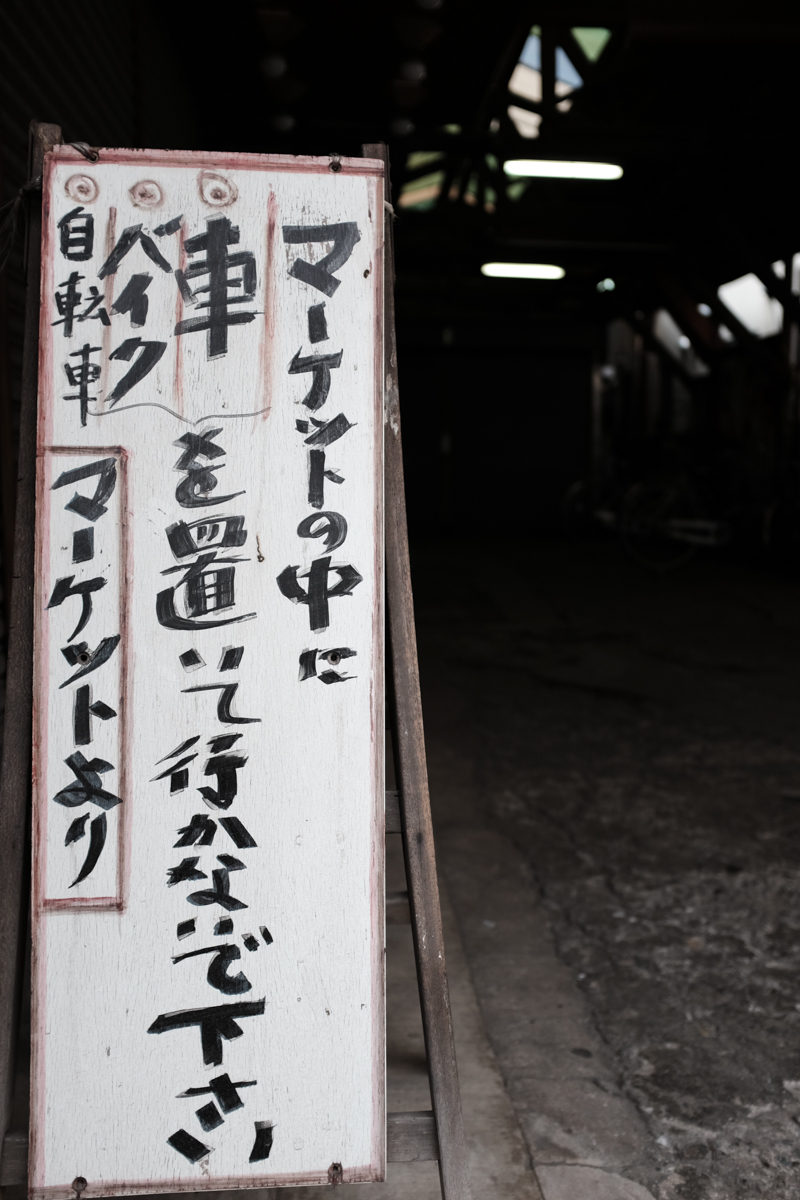 マーケットの中に
車
バイク
自転車
を置いて行かないで下さい
マーケットより